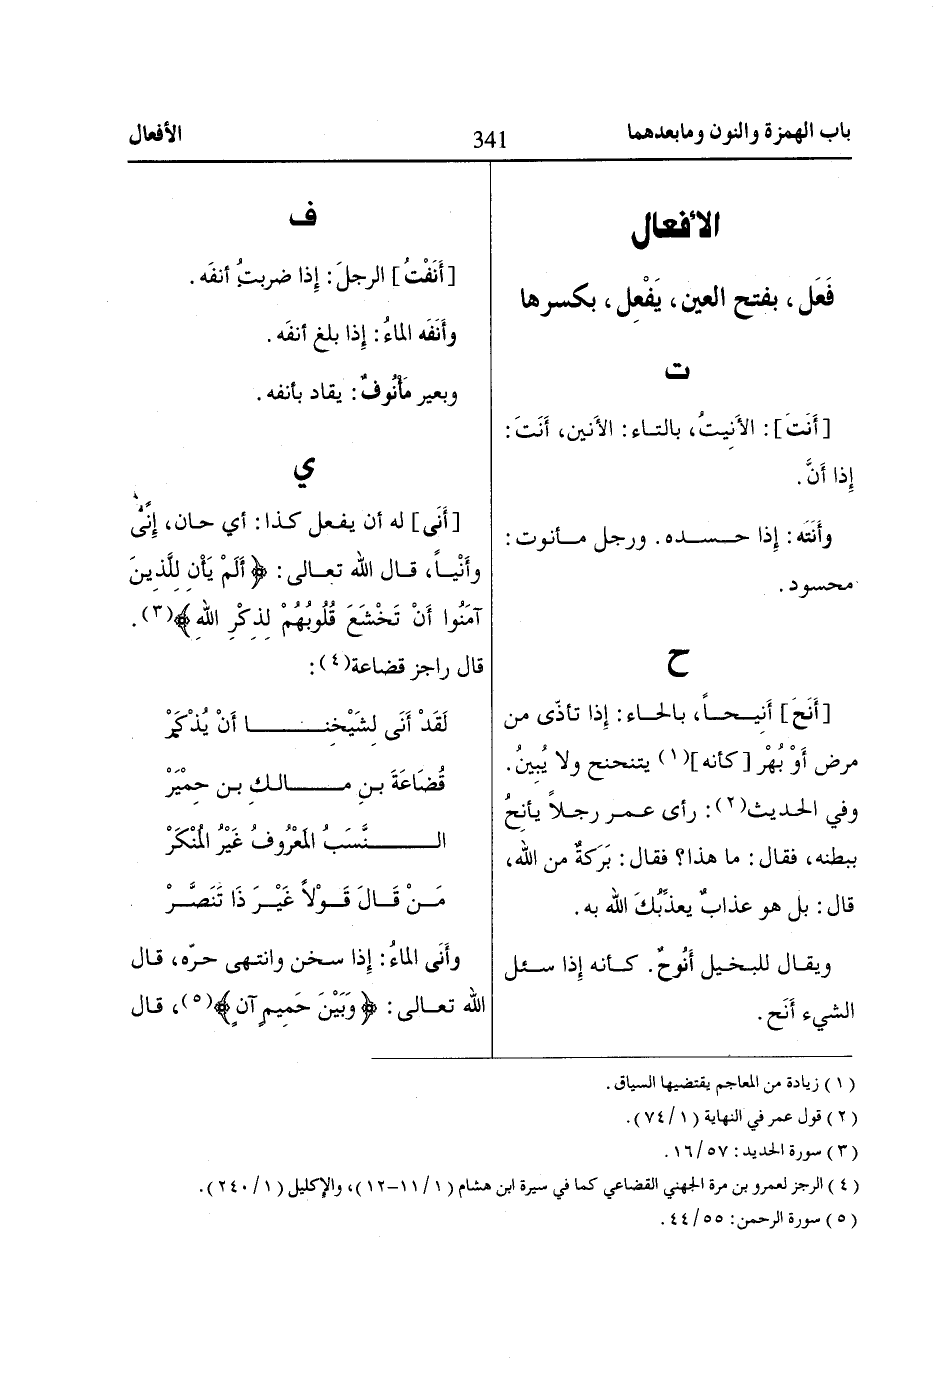 باب الهمزة والنون ومابعدهما
341
الأفعال
الأفعال
فَعَل، بفتح العين، يَفْعِل، بكسرها
ت
[أَنَتَ]: الأَنيتُ، بالتاء: الأنين، أَنَتَ:
إذا أَنَّ.
وأَنَتَه: إذا حسده. ورجل مأنوت:
محسود.
ح
[أَنَحَ] أنيحاً، بالحاء: إذا تأذّى من
مرض أَوْ بُهْر [كأنه](١) يتنحنح ولا يُبِينُ.
وفي الحديث(٢): رأى عمر رجلاً يأنحُ
ببطنه، فقال: ما هذا؟ فقال: بَرَكةٌ من الله،
قال: بل هو عذابٌ يعذّبُكَ الله به.
ويقال للبخيل أَنُوحٌ. كأنه إذا سئل
الشيء أَنَح.
ف
[أَنَفْتُ] الرجلَ: إذا ضربتُ أنفَه.
وأَنَفَه الماءُ: إذا بلغ أنفَه.
وبعير مَأْنُوفٌ: يقاد بأنفه.
ي
[أَنَى] له أن يفعل كذا: أي حان، إِنًى
وأَنْياً، قال الله تعالى: ﴿أَلَمْ يَأْنِ لِلَّذِينَ
آمَنُوا أَنْ تَخْشَعَ قُلُوبُهُمْ لِذِكْرِ اللهِ﴾(٣).
قال راجز قضاعة(٤):
لَقَدْ أَنَى لِشَيْخِنا أَنْ يُذْكَرْ
قُضَاعَةَ بنِ مالك بن حِمْيَرْ
النَّسَبُ المَعْرُوفُ غَيْرُ المُنْكَرْ
مَنْ قَالَ قَوْلاً غَيْرَ ذَا تَنَصَّرْ
وأَنَى الماءُ: إذا سخن وانتهى حرّه، قال
الله تعالى: ﴿وَبَيْنَ حَمِيمٍ آنٍ﴾(٥)، قال
(١) زيادة من المعاجم يقتضيها السياق.
(٢) قول عمر في النهاية (١/ ٧٤).
(٣) سورة الحديد: ٥٧/ ١٦.
(٤) الرجز لعمرو بن مرة الجهني القضاعي كما في سيرة ابن هشام (١/ ١١-١٢)، والإكليل (١/ ٢٤٠).
(٥) سورة الرحمن: ٥٥/ ٤٤.